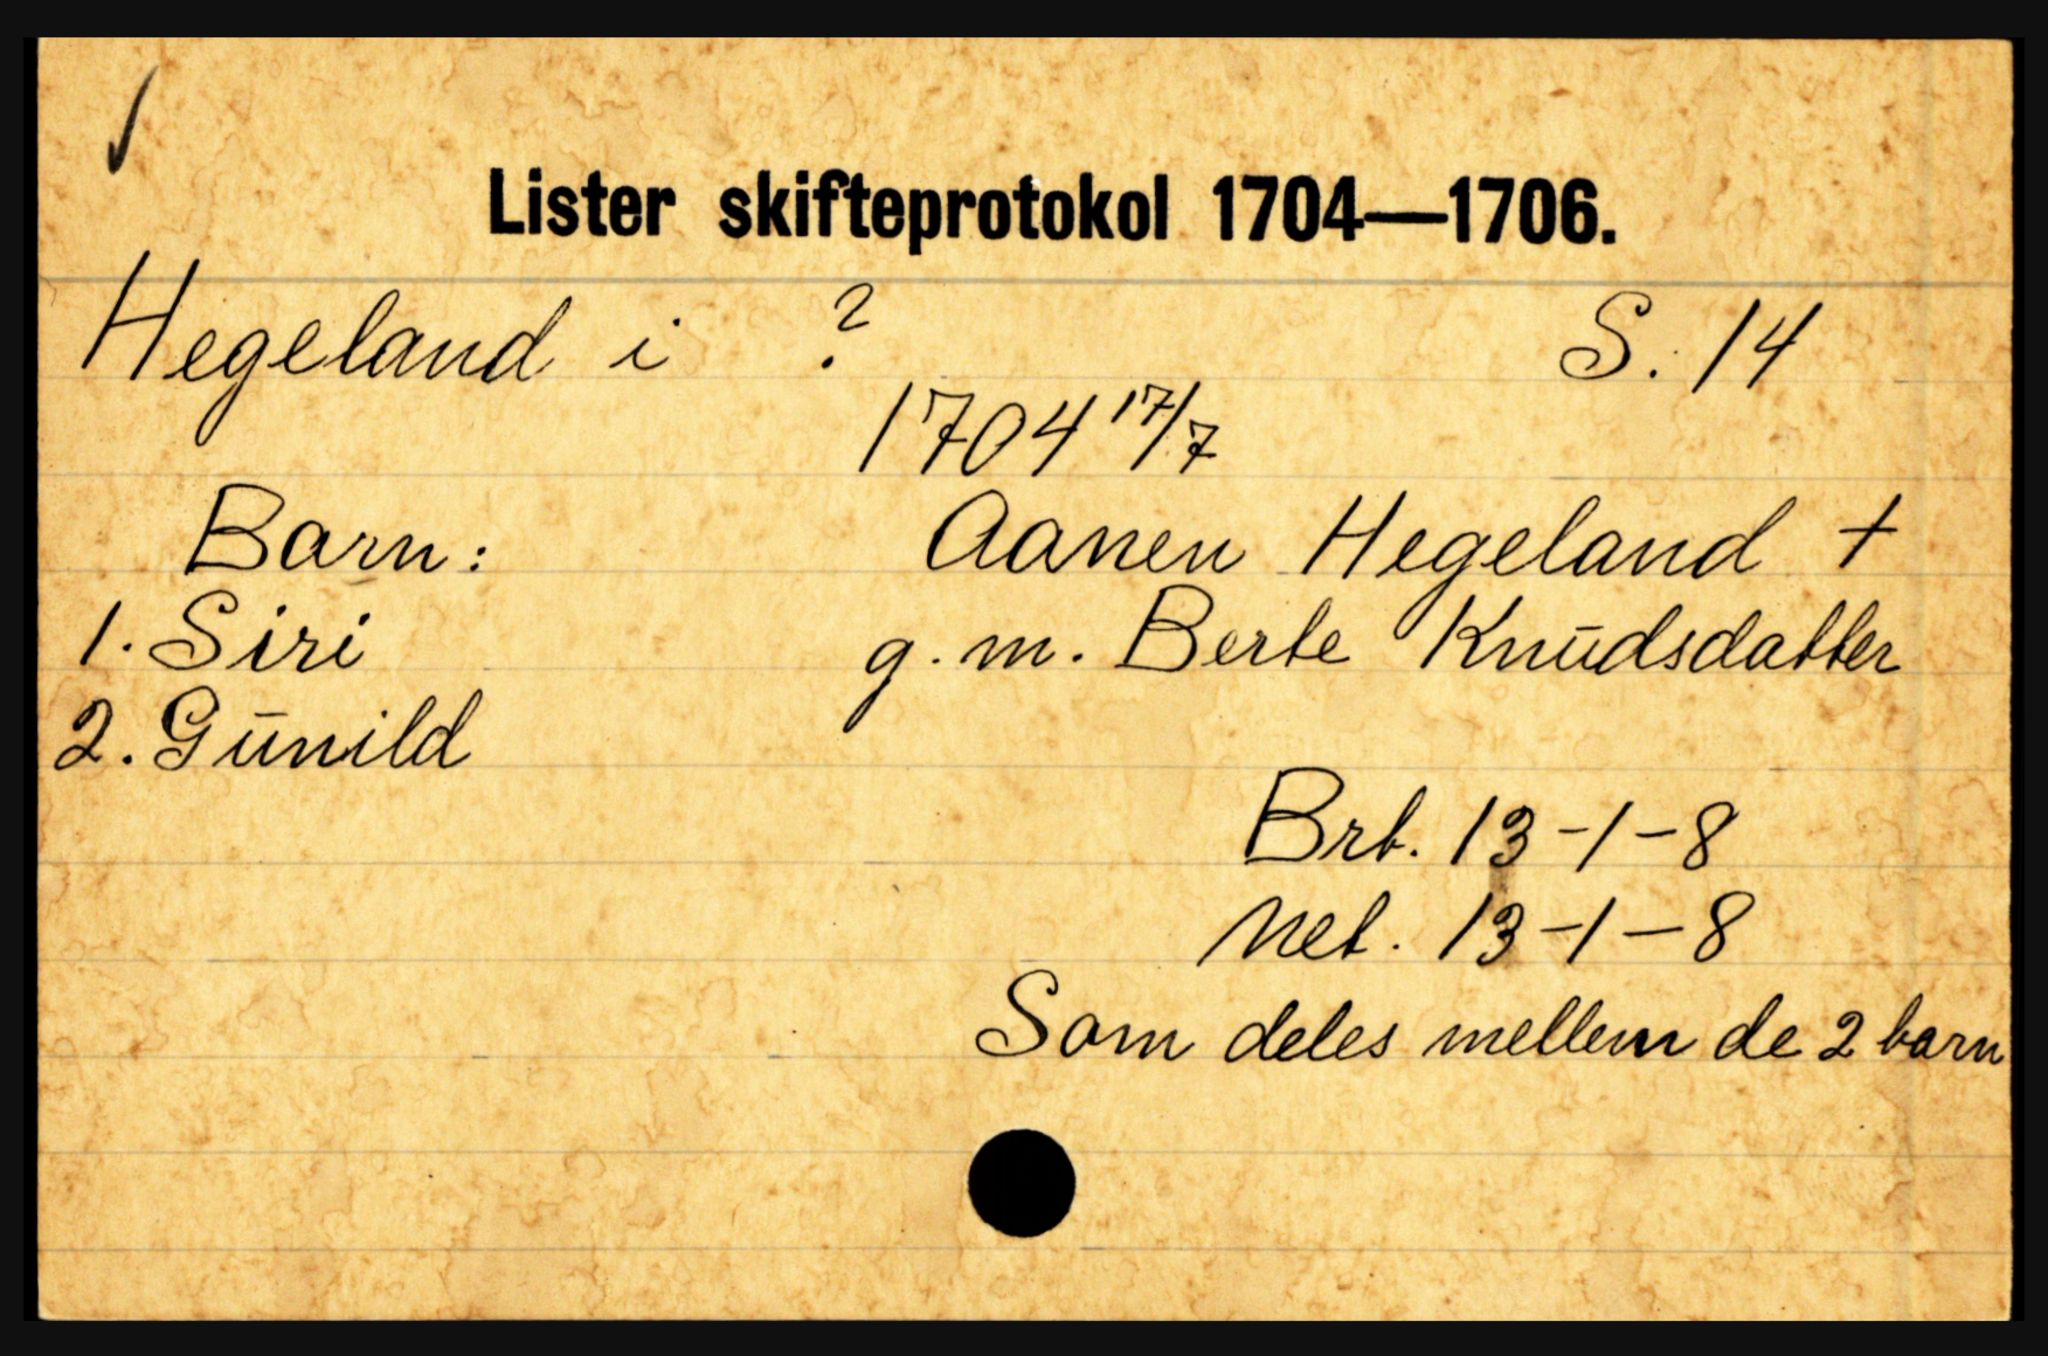 Lister skifteprotokol 1704—1706.
Hegeland i ? S. 14
1704 17/7
Barn: Aanen Hegeland +
1. Siri g.m. Berte Knūdsdatter
2. Gūnild
Brt. 13-1-8
Net. 13-1-8
Som deles mellem de 2 barn